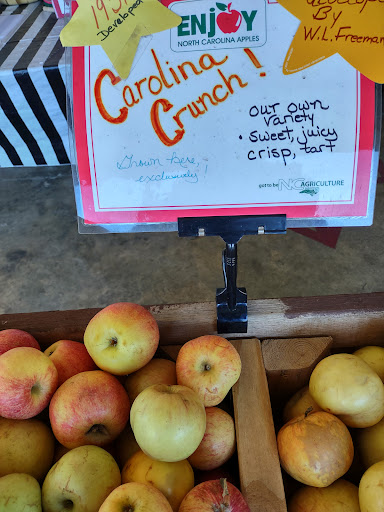 193
Developed
ENJOY
NORTH CAROLINA APPLES
By
W.L. Freeman
Carolina
Crunch!
our own
variety
• sweet, juicy
crisp, tart
Grown here,
exclusively!
got to be NC AGRICULTURE